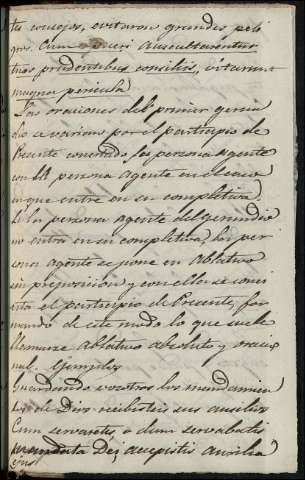 tes consejos, evitaron grandes peli
gros. Cum pueri auscultarentur
tuis prudentibus consiliis, vitarunt
magna pericula.
Las oraciones del primer gerun
dio se varian por el participio de
Presente concertado la persona agente
con la persona agente en el caso
que entre en su completiva.
Si la persona agente del gerundio
no entra en su completiva, la per
sona agente se pone en Ablativo
sin preposicion y con ella se concí
erta el participio de Presente, for
mando de este modo lo que suele
llamarse ablativo absoluto y oracio
nal. Ejemplos
Guardando vosotros los mandamien
tos de Dios recibisteis sus auxilios
Cum servaretis o dum servabatis
mandata Dei, accepistis auxilia
ejus